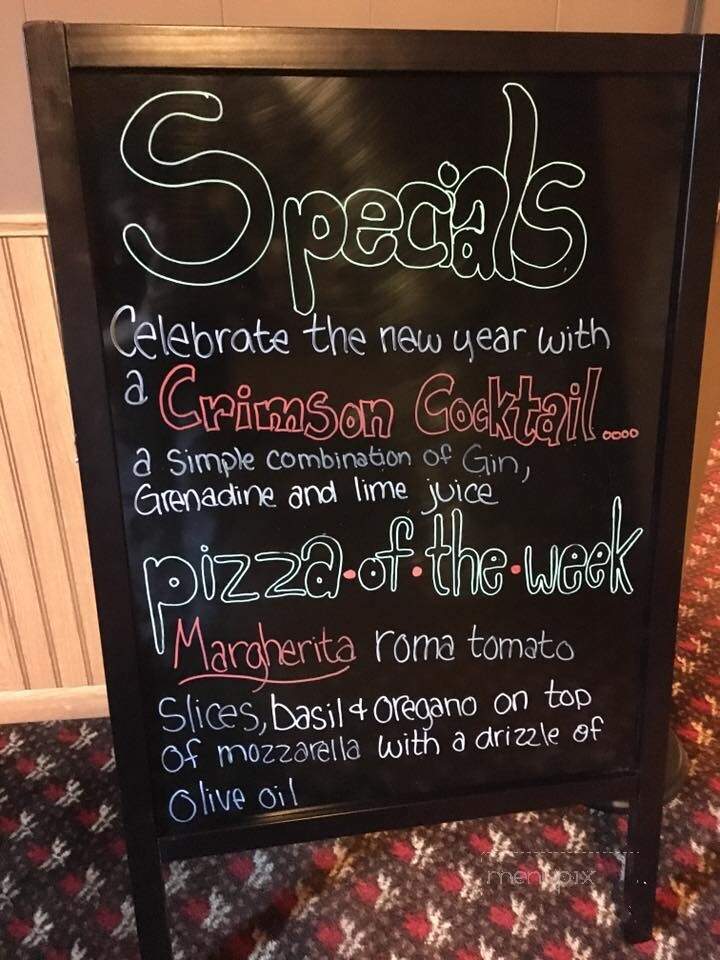 Specials
Celebrate the new year with
a Crimson Cocktail....
a simple combination of Gin,
Grenadine and lime juice
pizza·of·the·week
Margherita roma tomato
Slices, basil & oregano on top
of mozzarella with a drizzle of
Olive oil
menupix